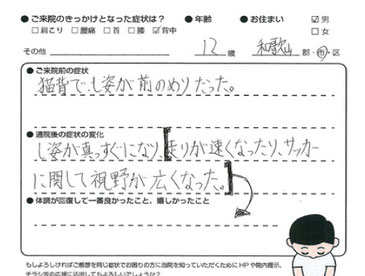 ●ご来院のきっかけとなった症状は？ ●年齢 ●お住まい ☑男
□肩こり □腰痛 □首 □膝 ☑背中 □女
その他 12歳 和歌山 郡・市・区
●ご来院前の症状
猫背で、し姿が前のめりだった。
●通院後の症状の変化
し姿が真っすぐになり、走りが速くなったり、サッカー
に関して視野が広くなった。
●体調が回復して一番良かったこと、嬉しかったこと
もしよろしければご感想を同じ症状でお困りの方に当院を知っていただくためにHPや院内掲示、
チラシ等の広報に活用してもよろしいでしょうか？